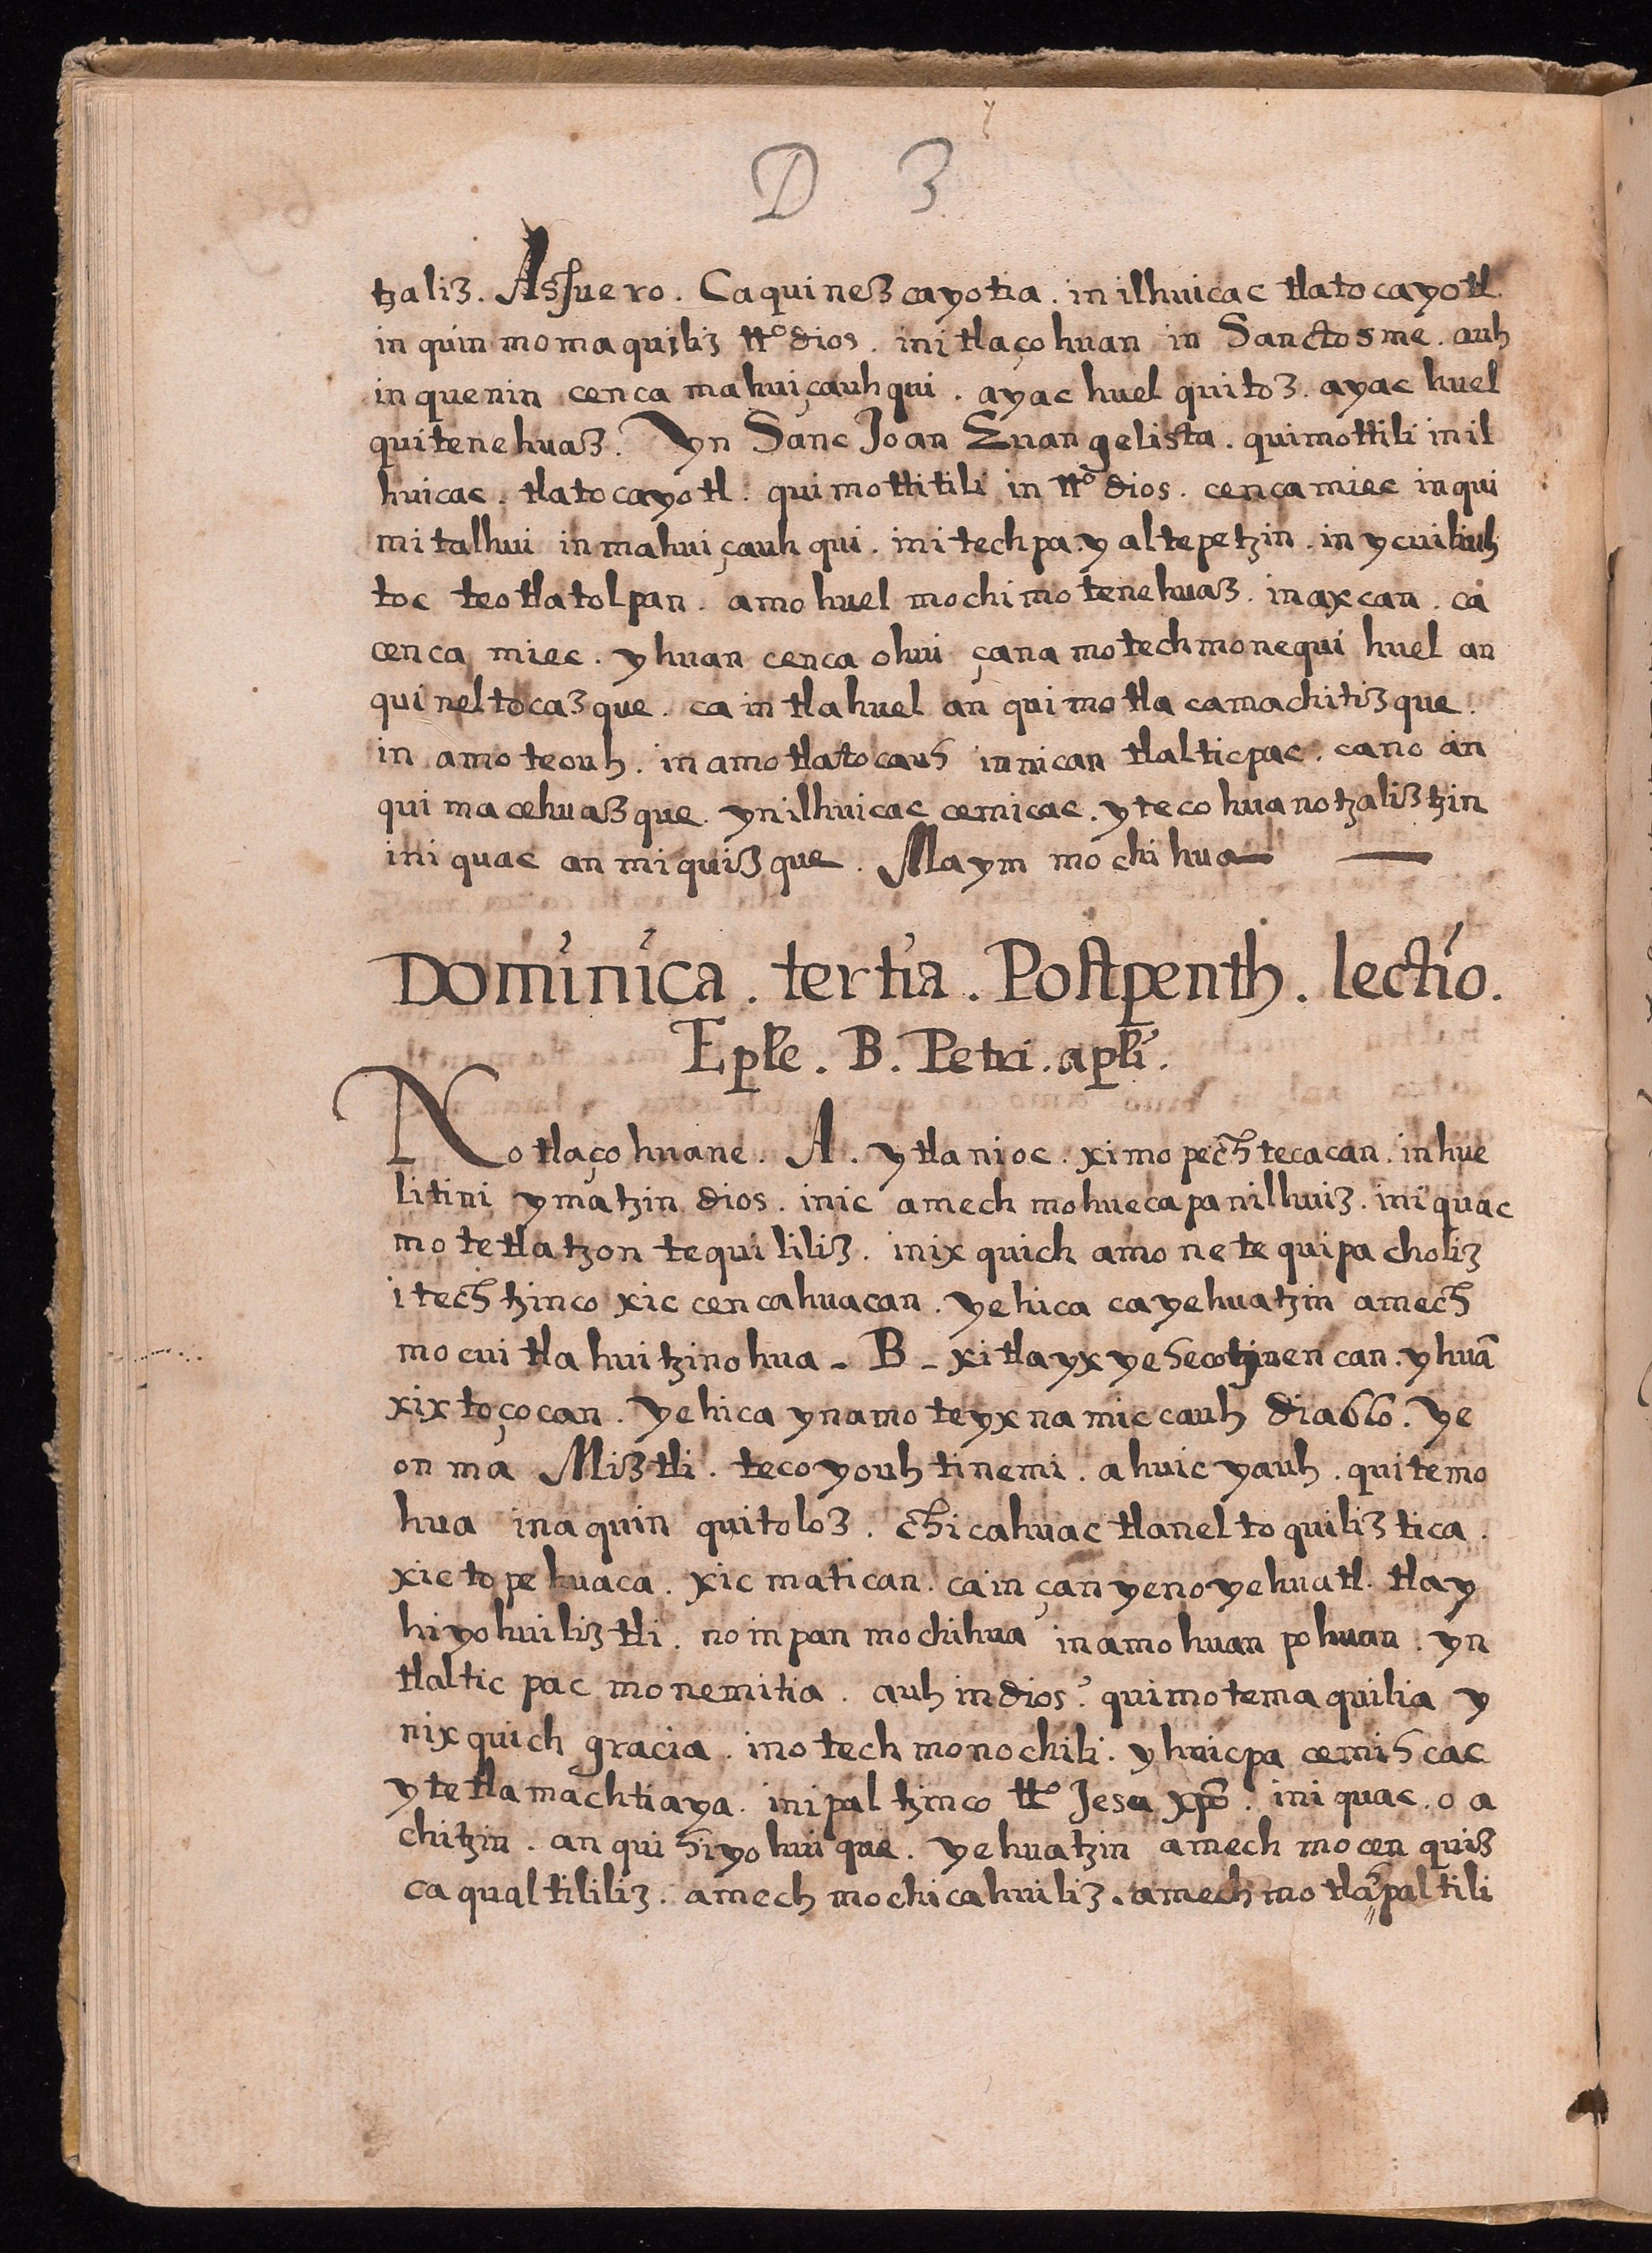 D 3
tzaliz. Assuero. Caquinezcayotia. in ilhuicac tlatocayotl.
in quin momaquiliz tto dios. initlaçohuan in Sanctosme. auh
in quenin cenca mahuiçauhqui. ayac huel quitoz. ayac huel
quitenehuaz. Yn Sanc Joan Euangelista. quimottili in il
huicac. tlatocayotl. quimottitili in tto dios. cenca miec inqui
mitalhui in mahuiçauhqui. initechpa. y altepetzin. in ycuiliuh
toc teotlatolpan. amo huel mochi motenehuaz. in axcan. ca
cenca miec. yhuan cenca ohui çana motechmonequi huel an
quineltocazque. ca in tlahuel an quimotlacamachitizque.
in amoteouh. in amotlatocauh in nican tlalticpac. cano an
quimacehuazque. yn ilhuicac cemicac. ytecohuanotzaliztzin
iniquac anmiquizque. Maym mochihua —
Dominica. tertia. Postpenth. lectio.
Eple. B. Petri. apli.
Notlaçohuane. A. ytlanioc. ximopechtecacan. inhue
litini ymatzin dios. inic amechmohuecapanilhuiz. iniquac
motetlatzontequililiz. inixquich amonetequipacholiz
itechtzinco xiccencahuacan. yehica cayehuatzin amech
mocuitlahuitzinohua - B - xitlayxyehecotinencan. yhuā
xixtoçocan. Yehica ynamoteyxnamiccauh diablo. Ye
on ma Miztli. tecoyouhtinemi. ahuic yauh. quitemo
hua inaquin quitoloz. chicahuac tlaneltoquiliztica.
xictopehuaca. xicmatican. cain çanyenoyehuatl. tlay
hiyohuiliztli. no inpan mochihua inamohuanpohuan. yn
tlalticpac monemitia. auh indios. quimotemaquilia y
nixquich gracia. inotechmonochili. yhuicpa cemihcac
ytetlamachtiaya. inipaltzinco tto Jesu xpo. iniquac. o a
chitzin. anquihiyohuique. yehuatzin amechmocenquiz
caqualtililiz. amechmochicahuiliz. amechmotlapaltili